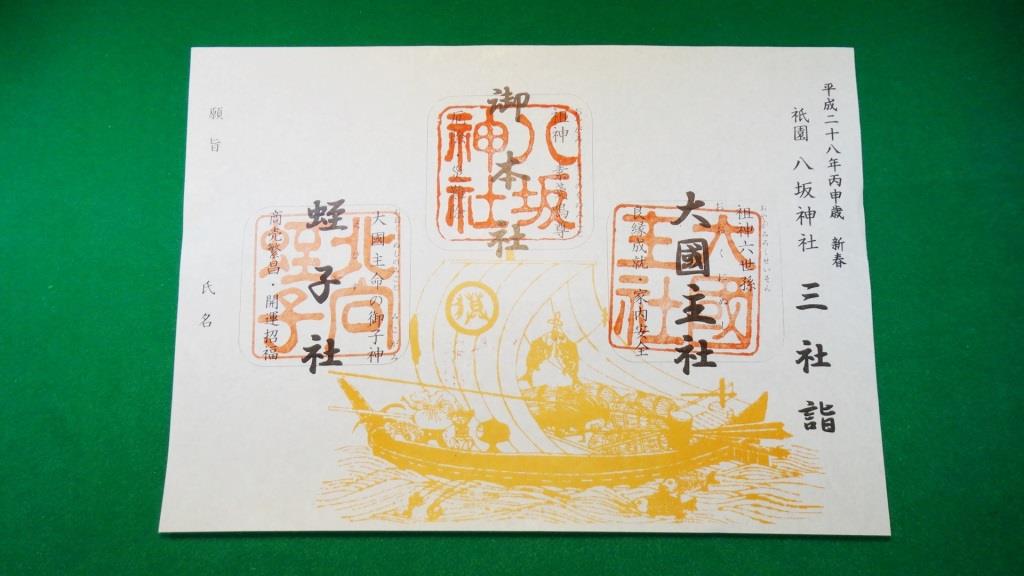 平成二十八年丙申歳 新春
祇園 八坂神社 三社詣
大國主社
祖神六世孫
良縁成就・家内安全
大國主社
御本社
祖神 素戔嗚尊
八坂神社
蛭子社
大國主命の御子神
商売繁昌・開運招福
北向蛭子
願旨
氏名